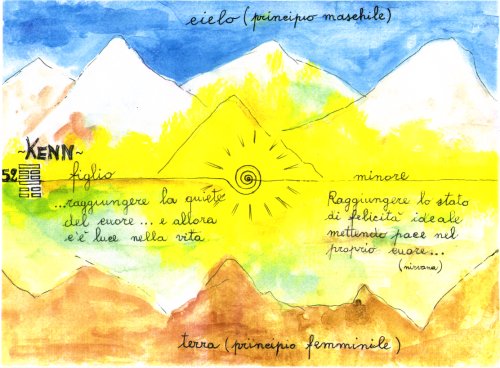 cielo (principio maschile)
~KENN~
52
figlio
minore
...raggiungere la quiete
del cuore... e allora
c'è luce nella vita
Raggiungere lo stato
di felicità ideale
mettendo pace nel
proprio cuore...
(nirvana)
terra (principio femminile)